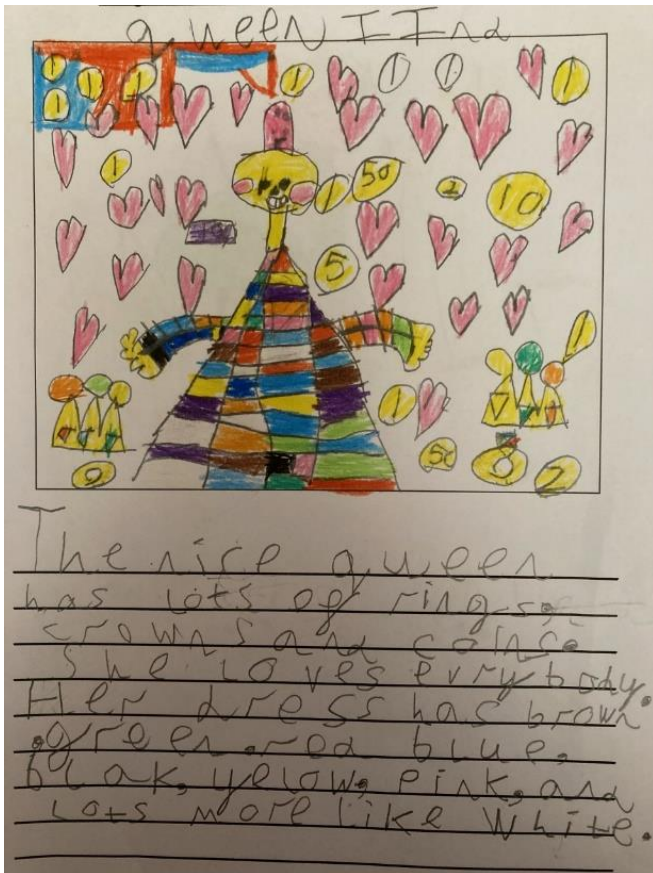 queen IInd
1
1
1
1
1
1
1
1
50
2
10
5
1
1
50
8
2
The nice queen
has lots of rings,
crowns and coins.
She loves evrybody.
Her dress has brown
,green,red blue,
blak, yelow, pink, and
lots more like white.